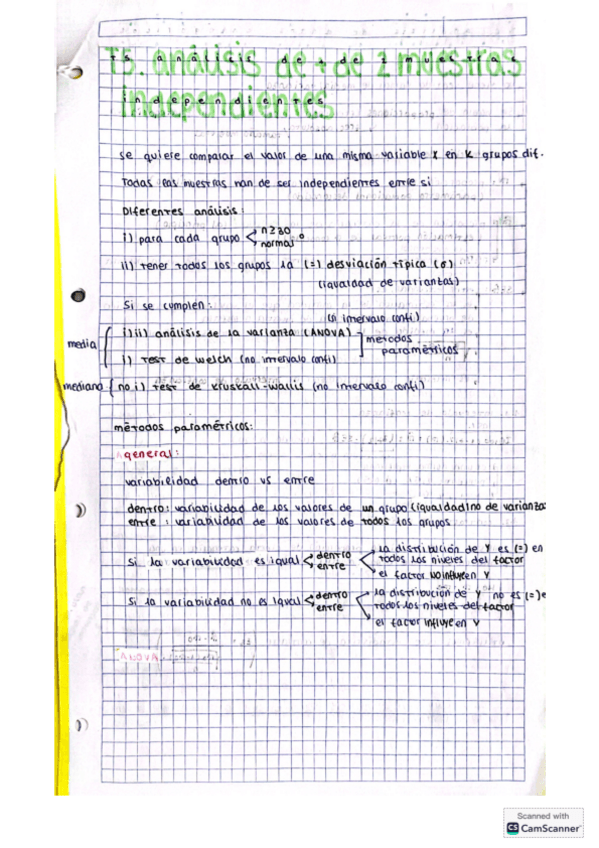 T5. análisis de + de 2 muestras
independientes
se quiere comparar el valor de una misma variable x en k grupos dif.
Todas las muestras han de ser independientes entre si
Diferentes análisis:
i) para cada grupo n≥30
normal
ii) tener todos los grupos la (=) desviación típica (σ)
(igualdad de varianzas)
Si se cumplen:
(sí intervalo confi)
media i) ii) análisis de la varianza (ANOVA)
métodos
paramétricos
i) Test de welch (no intervalo confi)
mediana no i) Test de Kruskall-wallis (no intervalo confi)
métodos paramétricos:
general:
variabilidad dentro vs entre
dentro: variabilidad de los valores de un grupo (igualdad/no de varianza
entre: variabilidad de los valores de todos los grupos
Si la variabilidad es igual dentro
entre
la distribución de Y es (=) en
todos los niveles del factor
el factor no influye en Y
Si la variabilidad no es igual dentro
entre
la distribución de Y no es (=) e
todos los niveles del factor
el factor influye en Y
ANOVA
Scanned with
CS CamScanner